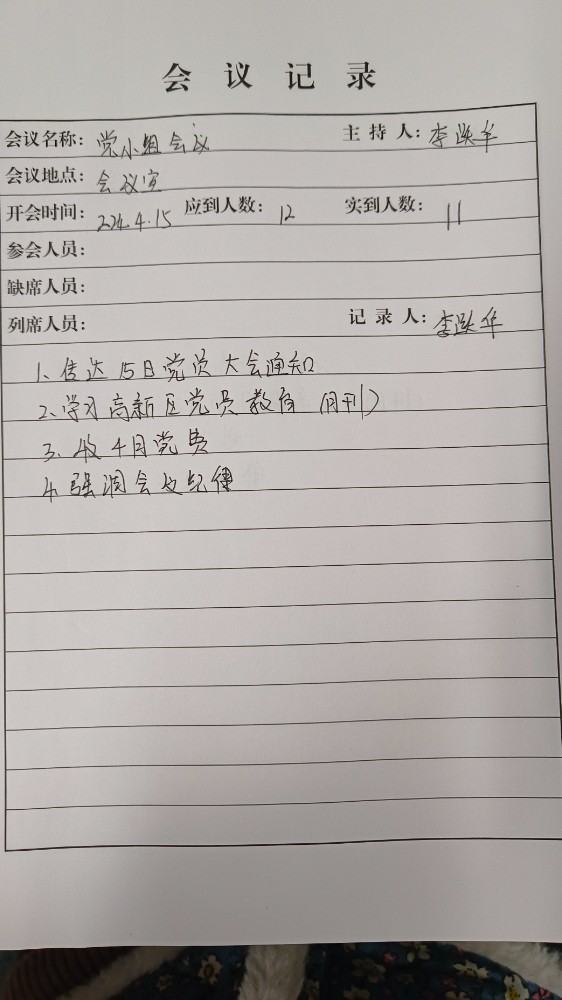 会议记录
会议名称：党小组会议 主持人：李跃华
会议地点：会议室
开会时间：2024.4.15 应到人数：12 实到人数：11
参会人员：
缺席人员：
列席人员： 记录人：李跃华
1、传达15日党员大会通知
2、学习高新区党员教育（月刊）
3、收4月党费
4、强调会议纪律